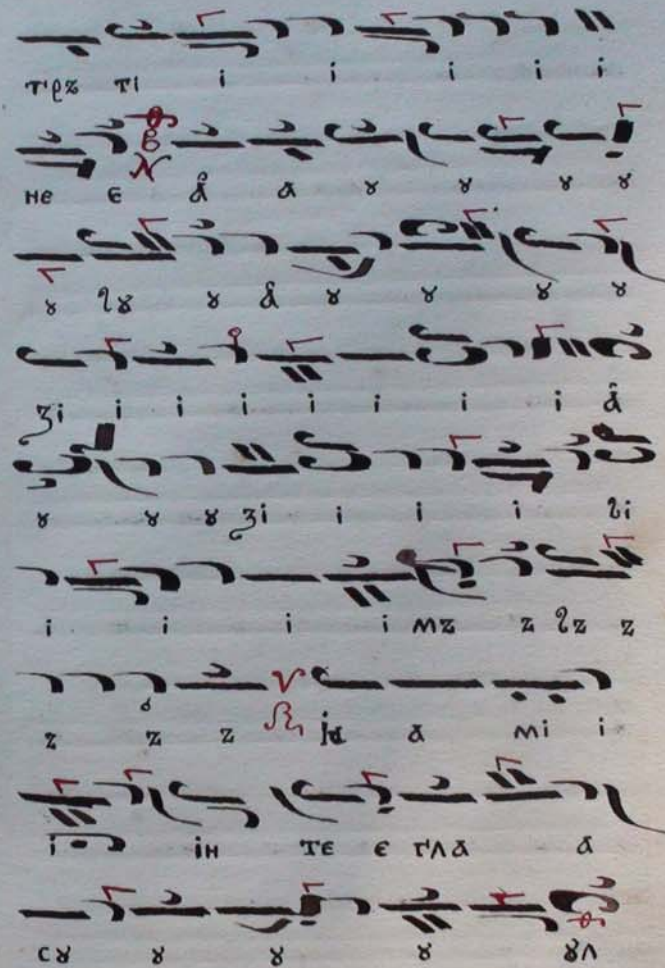 тръ ті і і і і і
не є а̑ а ꙋ ꙋ ꙋ ꙋ
ꙋ ꙋ а̑ ꙋ ꙋ ꙋ ꙋ
зі і і і і і і і а̑
ꙋ ꙋ ꙋ зі і і і
і і і і мъ ъ ъ
ъ ъ ъ ꙗ а мі і
і ін те є гла а
сꙋ ꙋ ꙋ ꙋ ꙋл